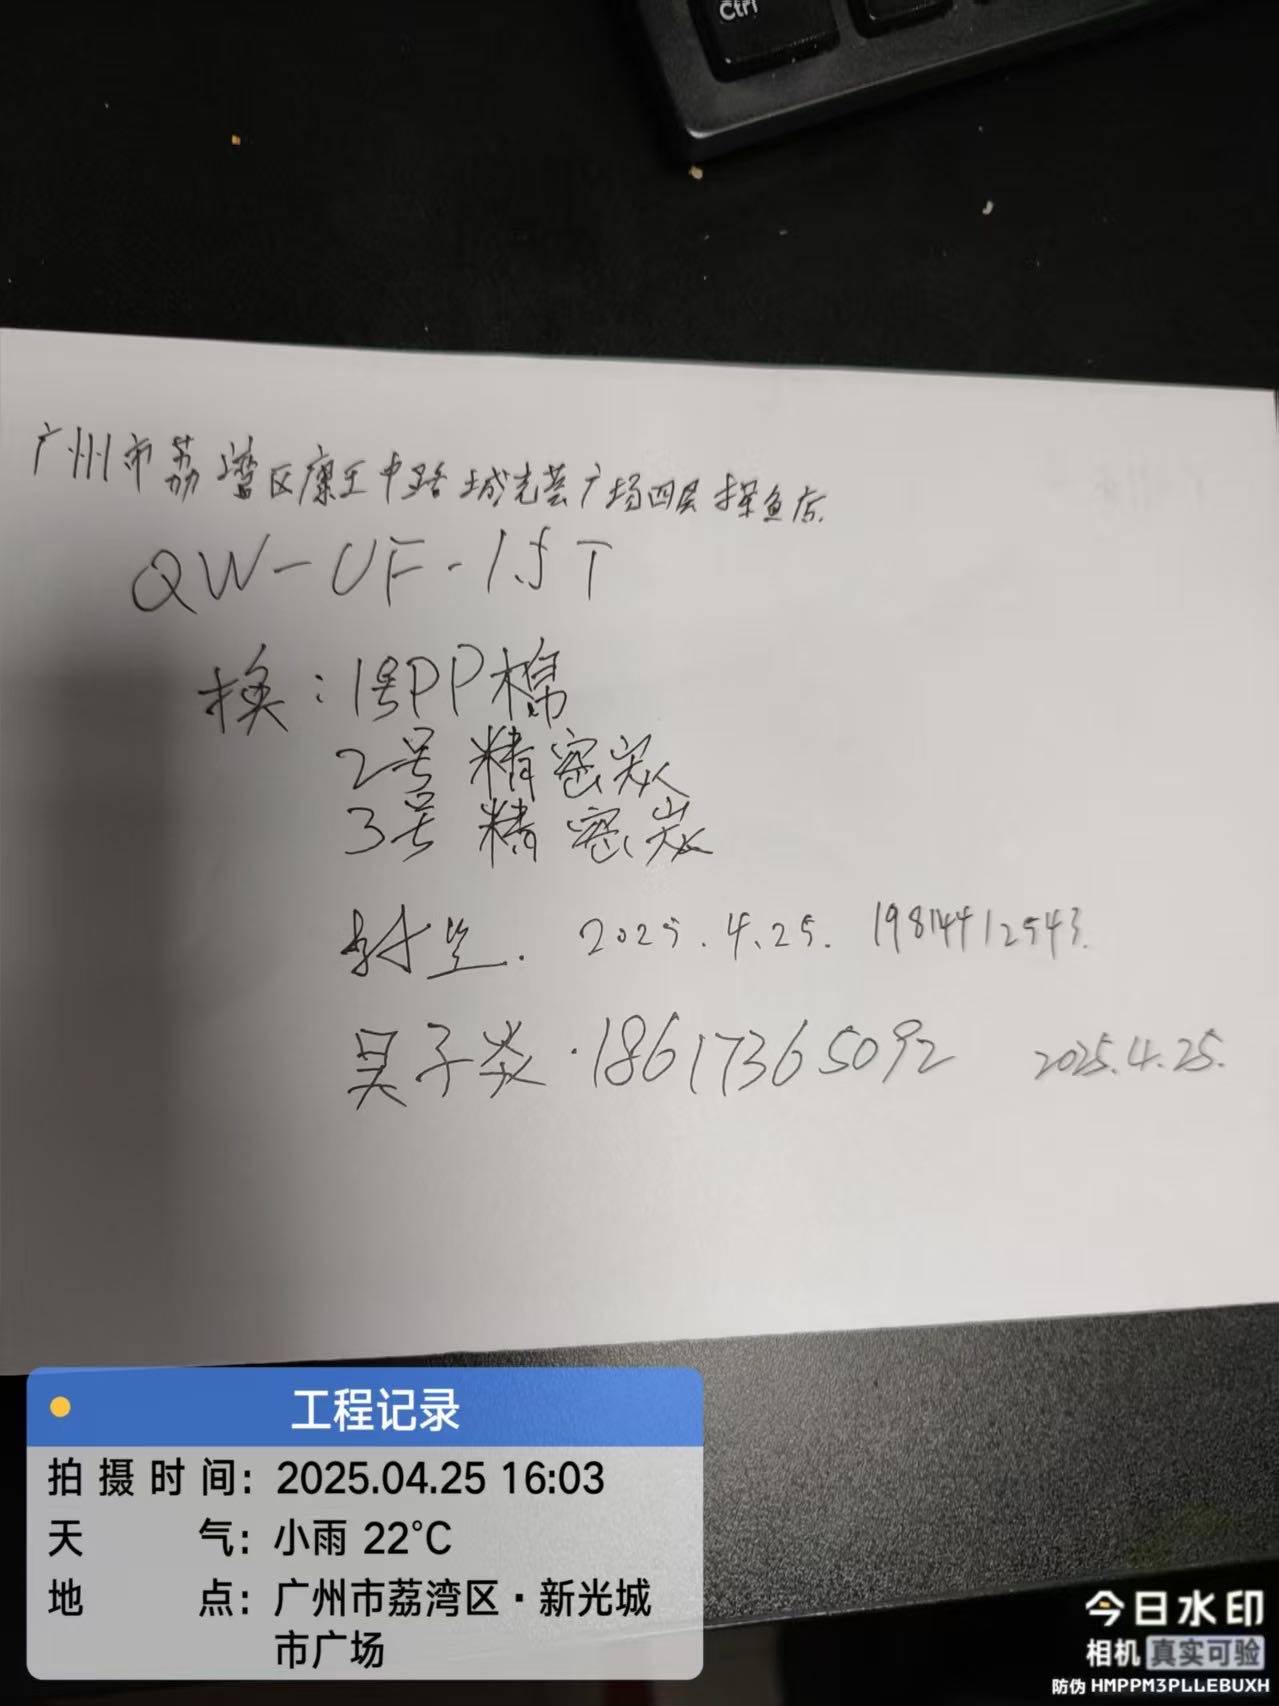 Ctrl
广州市荔湾区康王中路城光荟广场四层探鱼店.
QW-UF-1.5T
换:1号PP棉
2号精密炭
3号精密炭
2025.4.25. 19814412543.
吴子炎·18617365092 2025.4.25.
工程记录
拍摄时间: 2025.04.25 16:03
天气: 小雨 22°C
地点: 广州市荔湾区·新光城
市广场
今日水印
相机 真实可验
防伪 HMPPM3PLLEBUXH